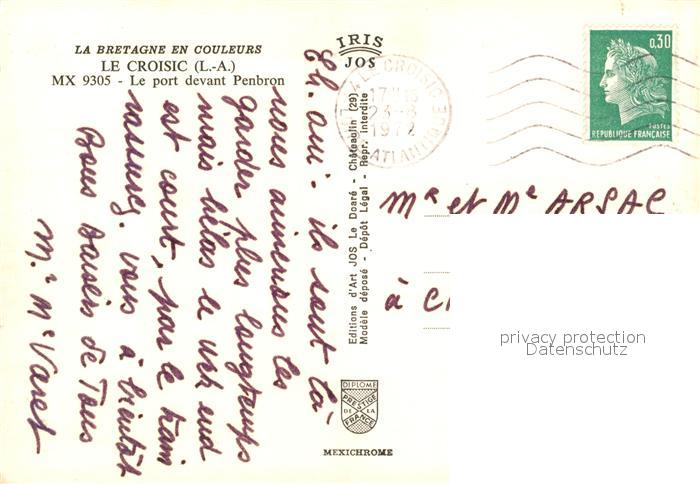 LA BRETAGNE EN COULEURS
LE CROISIC (L.-A.)
MX 9305 - Le port devant Penbron
Eh. oui. ils sont là
nous aimerions les
garder plus longtemps
mais hélas le wek end
est court, par le train
vous à bientôt
Bons baisers de Tous
Mr Me Varet
IRIS
JOS
Editions d'Art JOS Le Doaré - Châteaulin (29)
Modèle déposé - Dépôt Légal - Repr. Interdite
DIPLOME
PRESTIGE
DE LA
FRANCE
MEXICHROME
LE CROISIC
1972
ATLANTIQUE
0,30
POSTES
REPUBLIQUE FRANÇAISE
Mr et Me ARSAC
à
privacy protection
Datenschutz